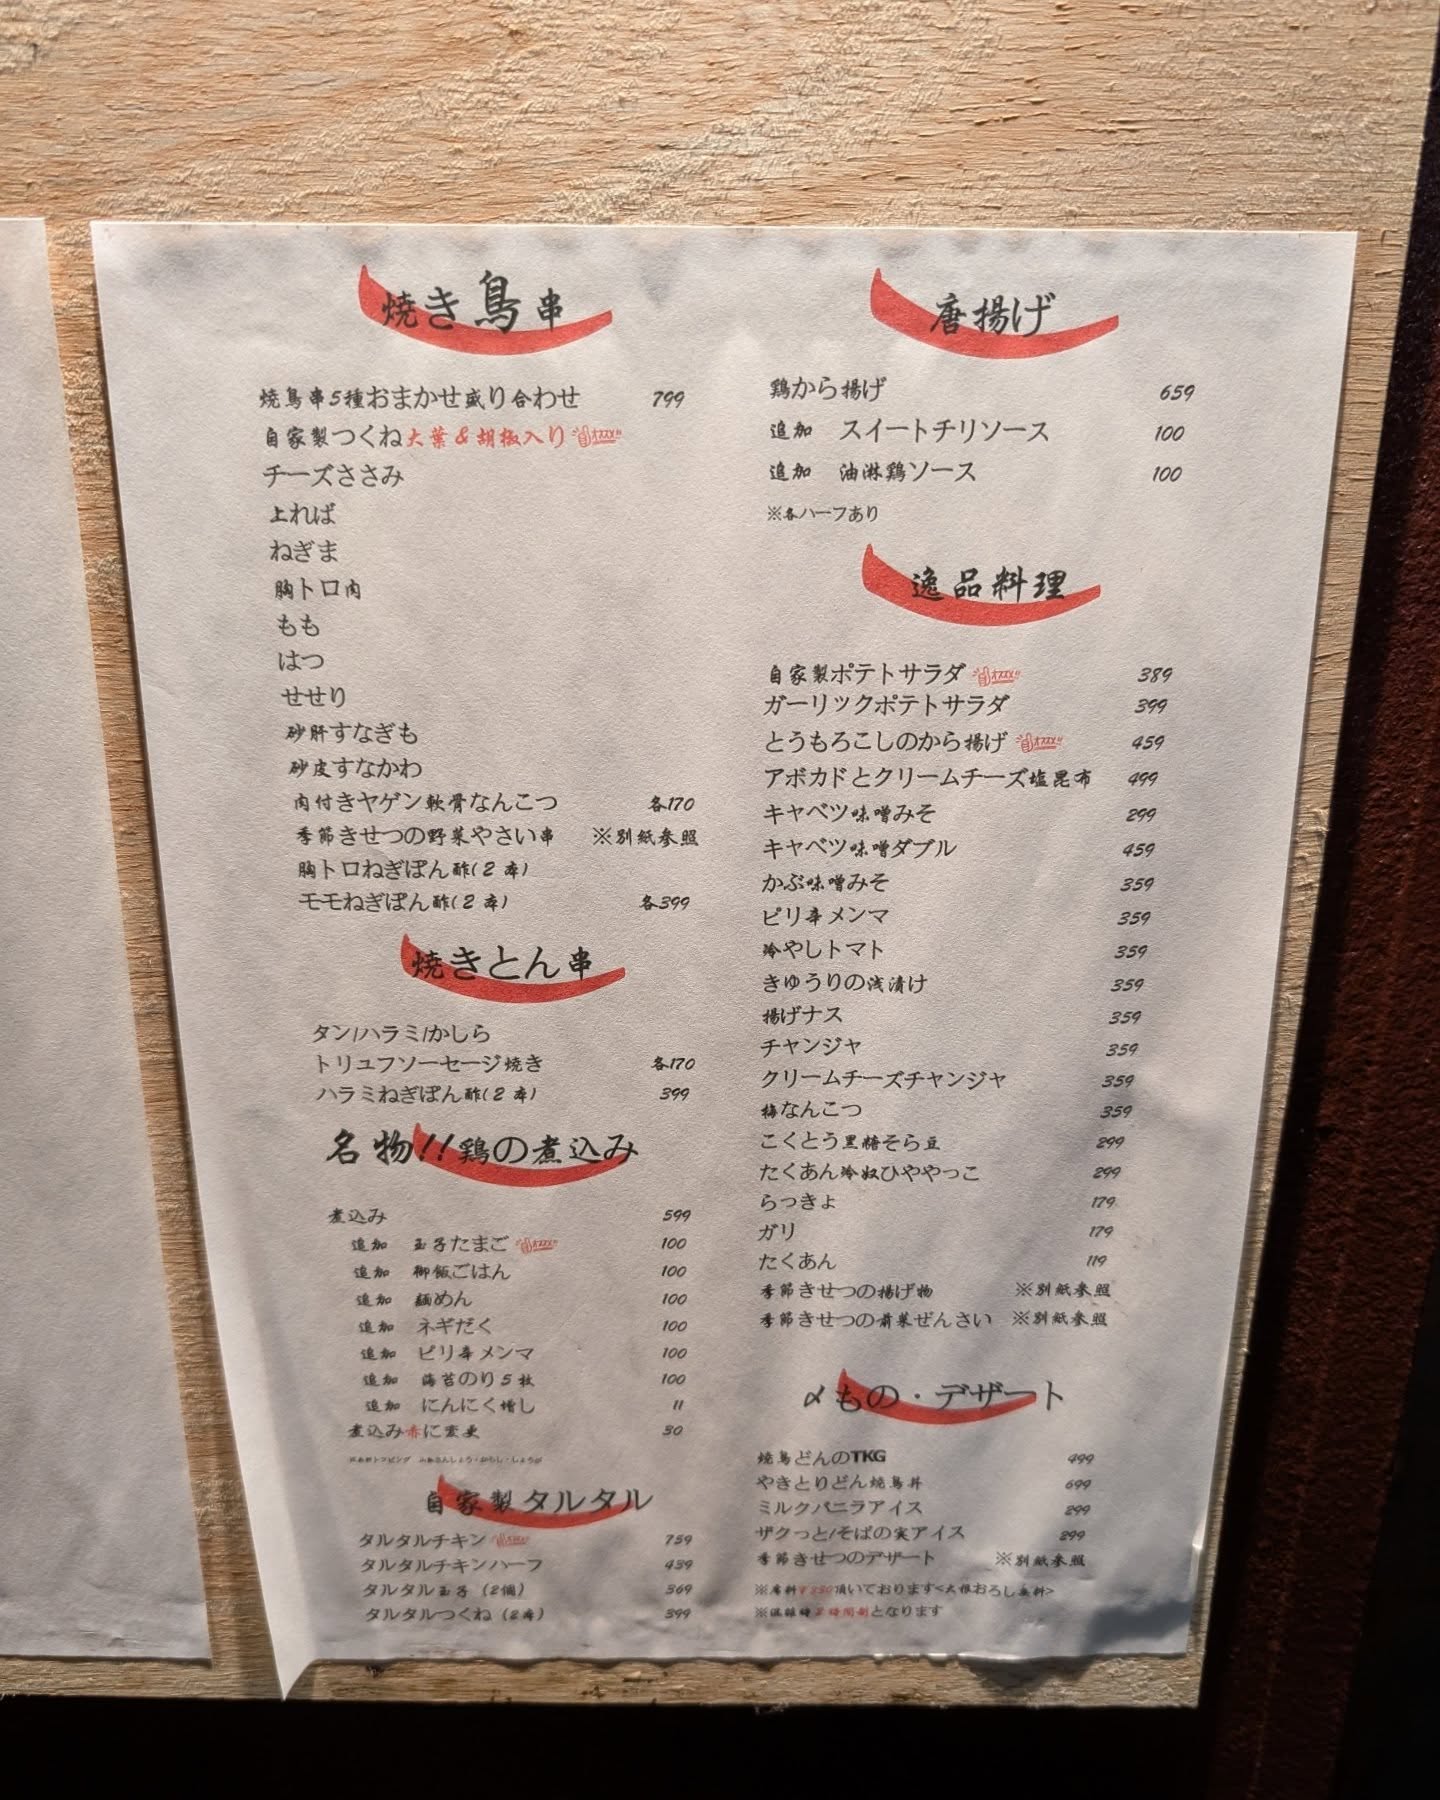 焼き鳥串
焼鳥串5種おまかせ盛り合わせ 799
自家製つくね大葉&胡椒入り
チーズささみ
上れば
ねぎま
胸トロ肉
もも
はつ
せせり
砂肝すなぎも
砂皮すなかわ
肉付きヤゲン軟骨なんこつ 各170
季節きせつの野菜やさい串 ※別紙参照
胸トロねぎぽん酢(2本)
モモねぎぽん酢(2本) 各399
焼きとん串
タン/ハラミ/かしら
トリュフソーセージ焼き 各170
ハラミねぎぽん酢(2本) 399
名物!!鶏の煮込み
煮込み 599
追加 玉子たまご 100
追加 御飯ごはん 100
追加 麺めん 100
追加 ネギだく 100
追加 ピリ辛メンマ 100
追加 海苔のり5枚 100
追加 にんにく増し 11
煮込み赤に変更 30
自家製タルタル
タルタルチキン 759
タルタルチキンハーフ 439
タルタル玉子(2個) 369
タルタルつくね(2本) 399
唐揚げ
鶏から揚げ 659
追加 スイートチリソース 100
追加 油淋鶏ソース 100
※各ハーフあり
逸品料理
自家製ポテトサラダ 389
ガーリックポテトサラダ 399
とうもろこしのから揚げ 459
アボカドとクリームチーズ塩昆布 499
キャベツ味噌みそ 299
キャベツ味噌ダブル 459
かぶ味噌みそ 359
ピリ辛メンマ 359
冷やしトマト 359
きゅうりの浅漬け 359
揚げナス 359
チャンジャ 359
クリームチーズチャンジャ 359
梅なんこつ 359
こくとう黒糖そら豆 299
たくあん冷奴ひややっこ 299
らっきょ 179
ガリ 179
たくあん 119
季節きせつの揚げ物 ※別紙参照
季節きせつの前菜ぜんさい ※別紙参照
〆もの・デザート
焼鳥どんのTKG 499
やきとりどん焼鳥丼 699
ミルクバニラアイス 299
ザクっと/そばの実アイス 299
季節きせつのデザート ※別紙参照
※席料¥330頂いております<大根おろし無料>
※混雑時2時間制となります